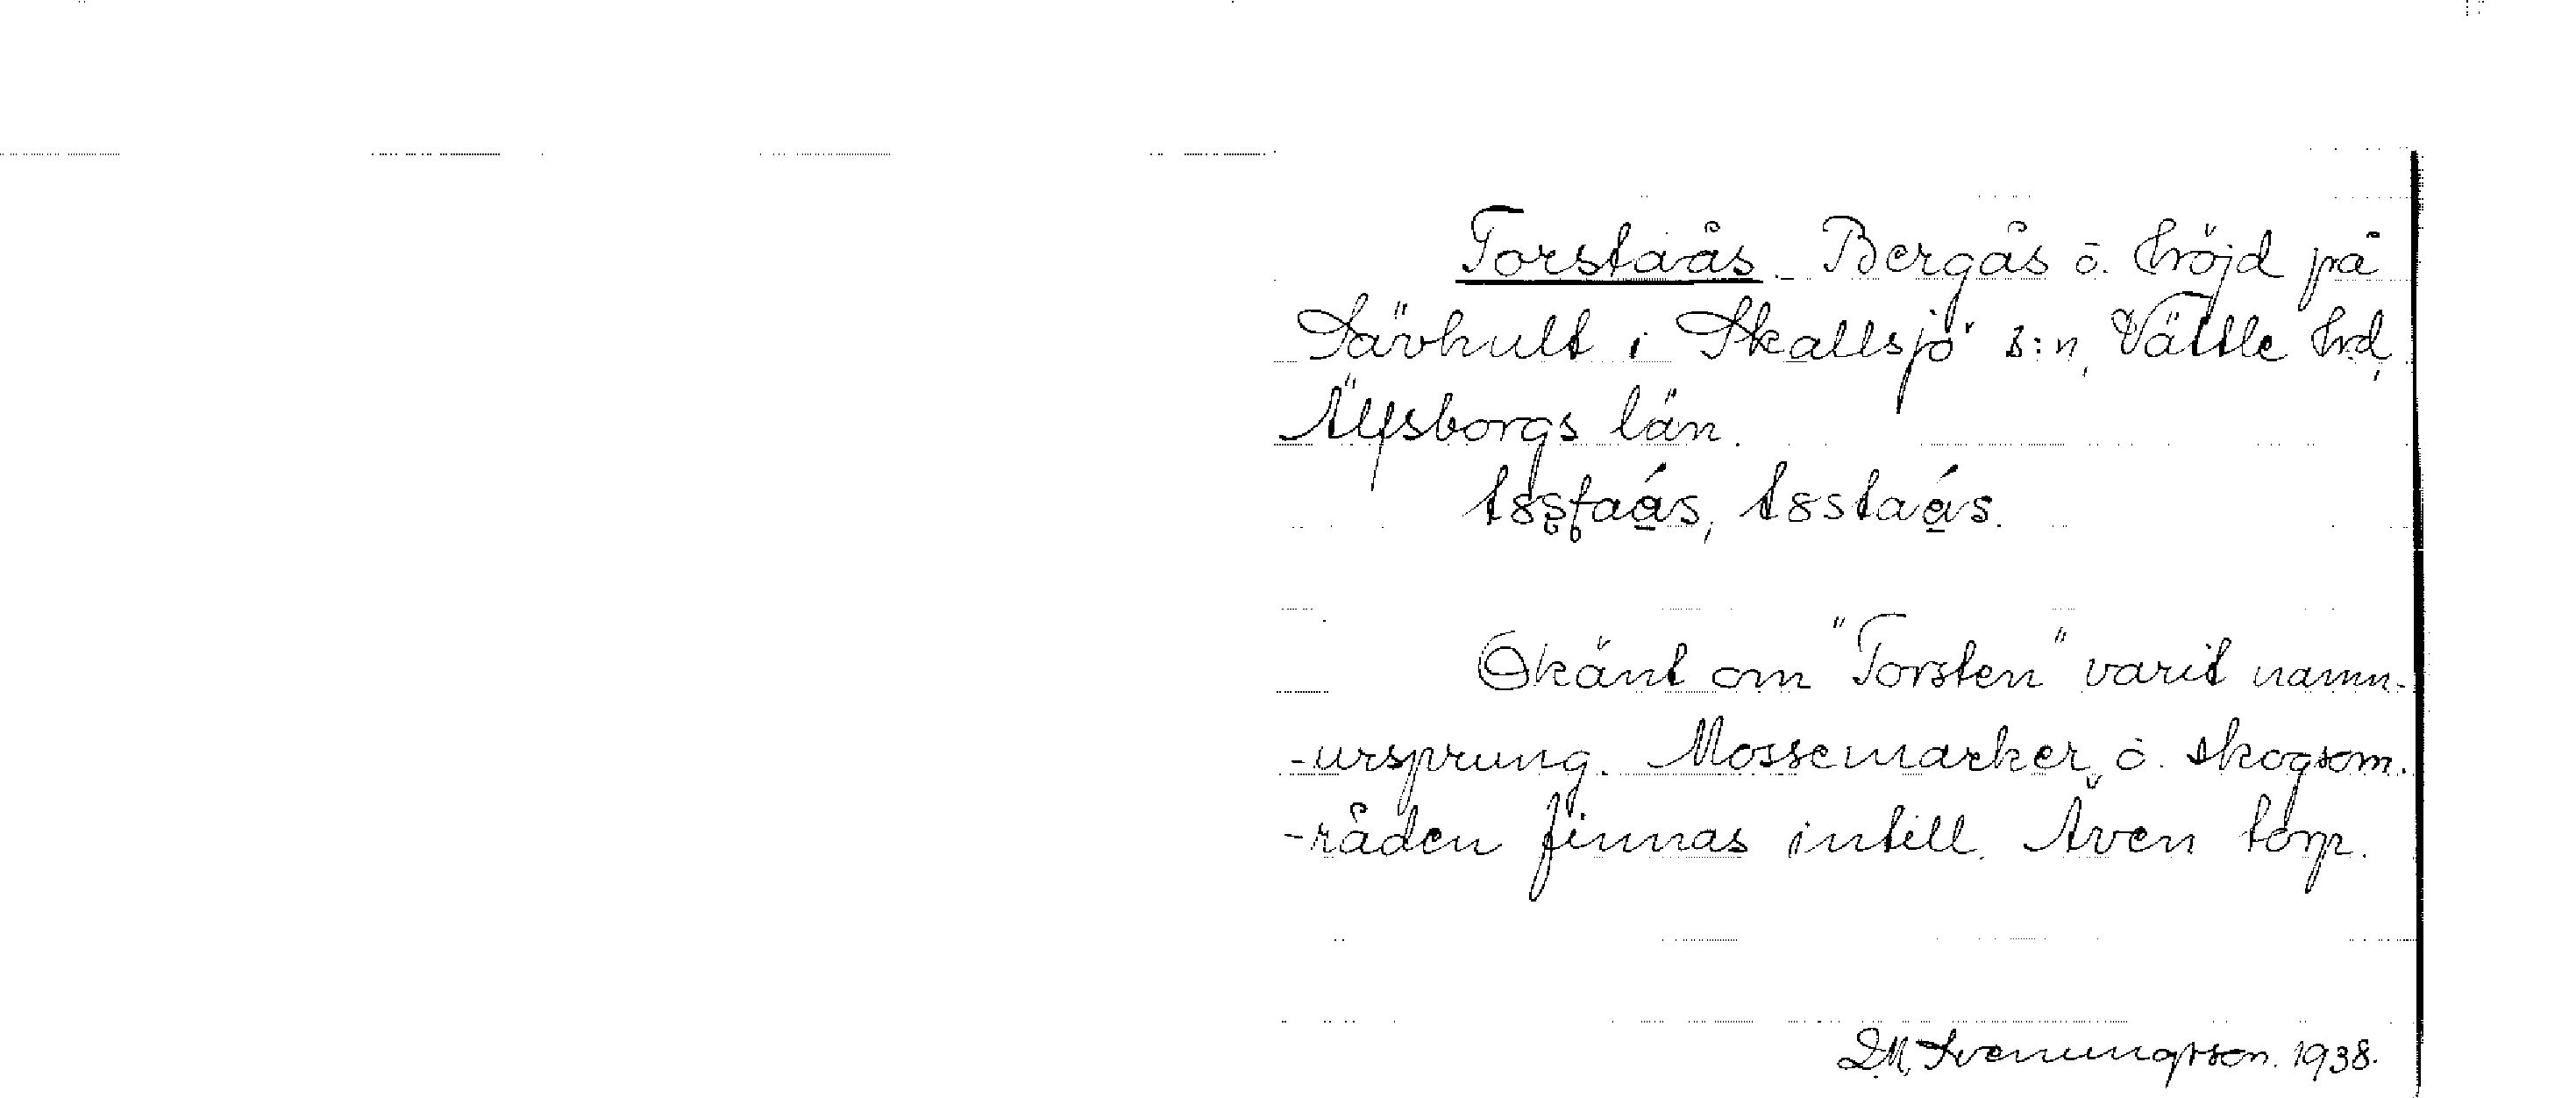 Torstaås. Bergås o. höjd på
Sävhult i Skallsjö s:n, Vättle hrd,
Älfsborgs län.
Okänt om "Torsten" varit namn-
-ursprung. Mossemarker o. skogsom-
-råden finnas intill. Även torp.
D.M. Svenningsson. 1938.